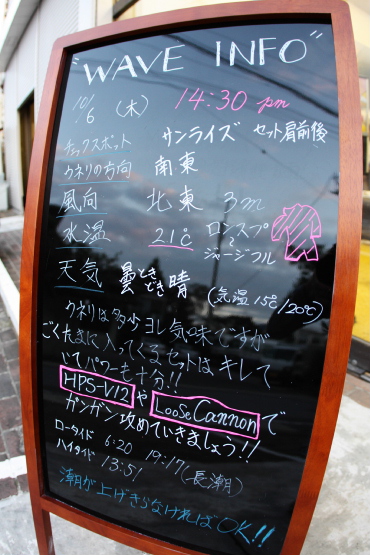 "WAVE INFO"
10/6 (木) 14:30 pm
チェックスポット サンライズ セット肩前後
ウネリの方向 南東
風向 北東 3m
水温 21℃ ロンスプ
~
ジャージフル
天気 曇ときどき晴 (気温15℃/20℃)
ウネリは多少ヨレ気味ですが
ごくたまに入ってくるセットはキレて
いてパワーも十分!!
HPS-V12 や LooSe Cannon で
ガンガン攻めていきましょう!!
ロータイド 6:20 19:17 (長潮)
ハイタイド 13:51
潮が上げきらなければOK!!